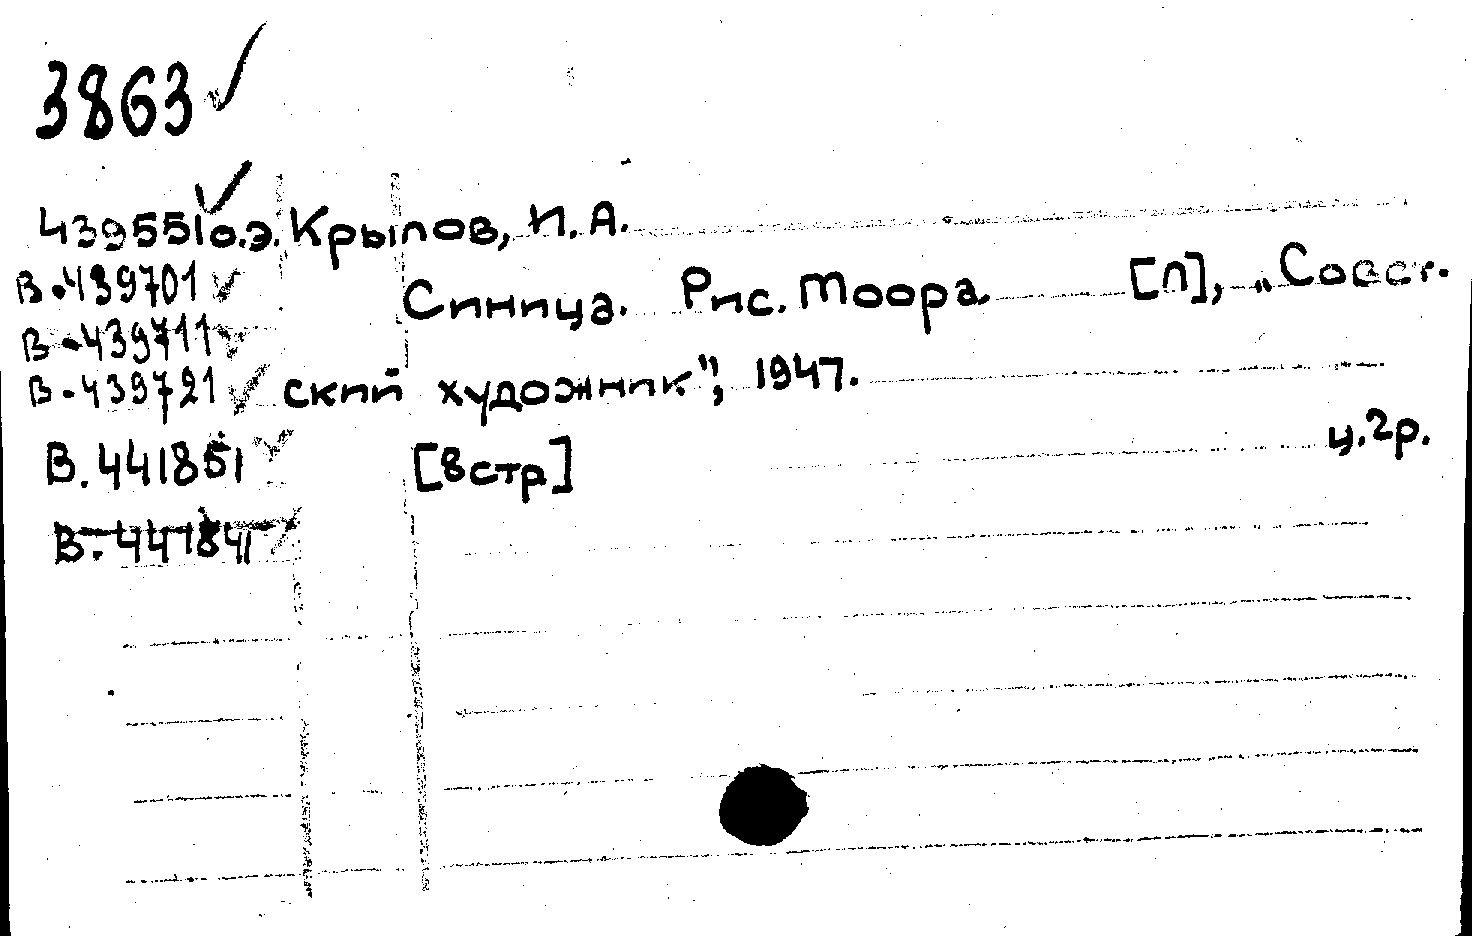 3863
439551 о.э. Крылов, И.А.
В-439701
Синица. Рис. Моора [Л], „Совет-
В-439711
В-439721 ский художник", 1947.
ц.2р.
В.441851 [8стр]
В.441841